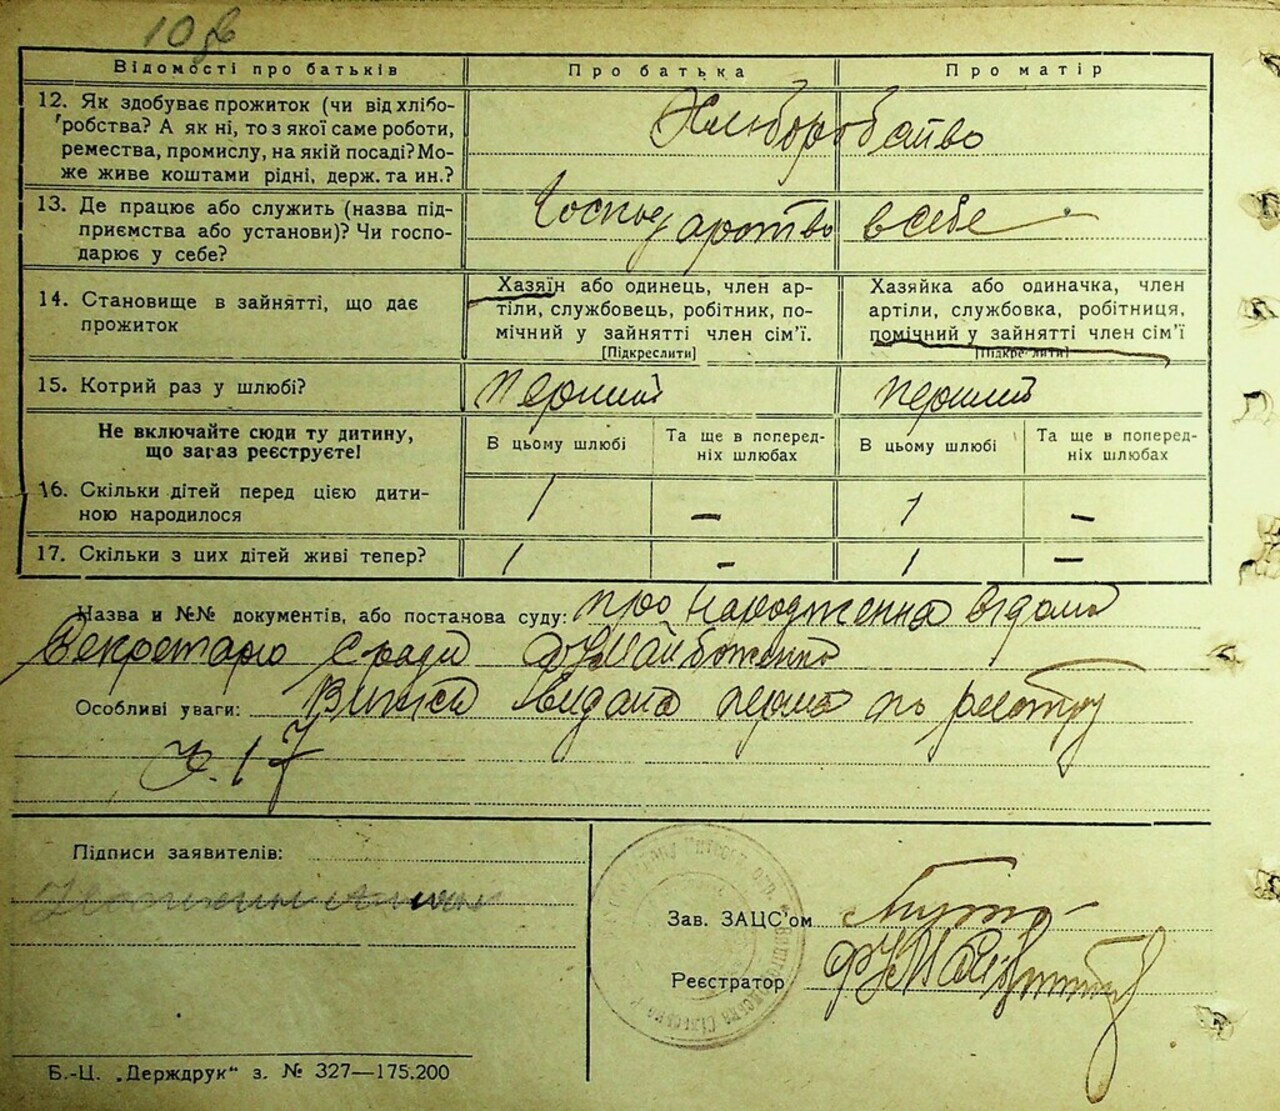 Відомості про батьків
Про батька
Про матір
12. Як здобуває прожиток (чи від хлібо-
робства? А як ні, то з якої саме роботи,
ремества, промислу, на якій посаді? Мо-
же живе коштами рідні, держ. та ин.?
Хліборобство
13. Де працює або служить (назва під-
приємства або установи)? Чи госпо-
дарює у себе?
Господарство в себе
14. Становище в зайнятті, що дає
прожиток
Хазяїн або одинець, член ар-
тіли, службовець, робітник, по-
мічний у зайнятті член сім'ї.
[Підкреслити]
Хазяйка або одиначка, член
артіли, службовка, робітниця,
помічний у зайнятті член сім'ї
[Підкреслити]
15. Котрий раз у шлюбі?
перший
перший
Не включайте сюди ту дитину,
що загаз реєструєте!
В цьому шлюбі
Та ще в поперед-
ніх шлюбах
В цьому шлюбі
Та ще в поперед-
ніх шлюбах
16. Скільки дітей перед цією дити-
ною народилося
1 – 1 –
17. Скільки з цих дітей живі тепер?
1 – 1 –
Назва и №№ документів, або постанова суду: про народження відомо
Секретарю с ради
Особливі уваги: видана перша по реєстру
Ч. 17
Підписи заявителів:
Зав. ЗАЦС'ом
Реєстратор
Б.-Ц. „Держдрук“ з. № 327—175.200